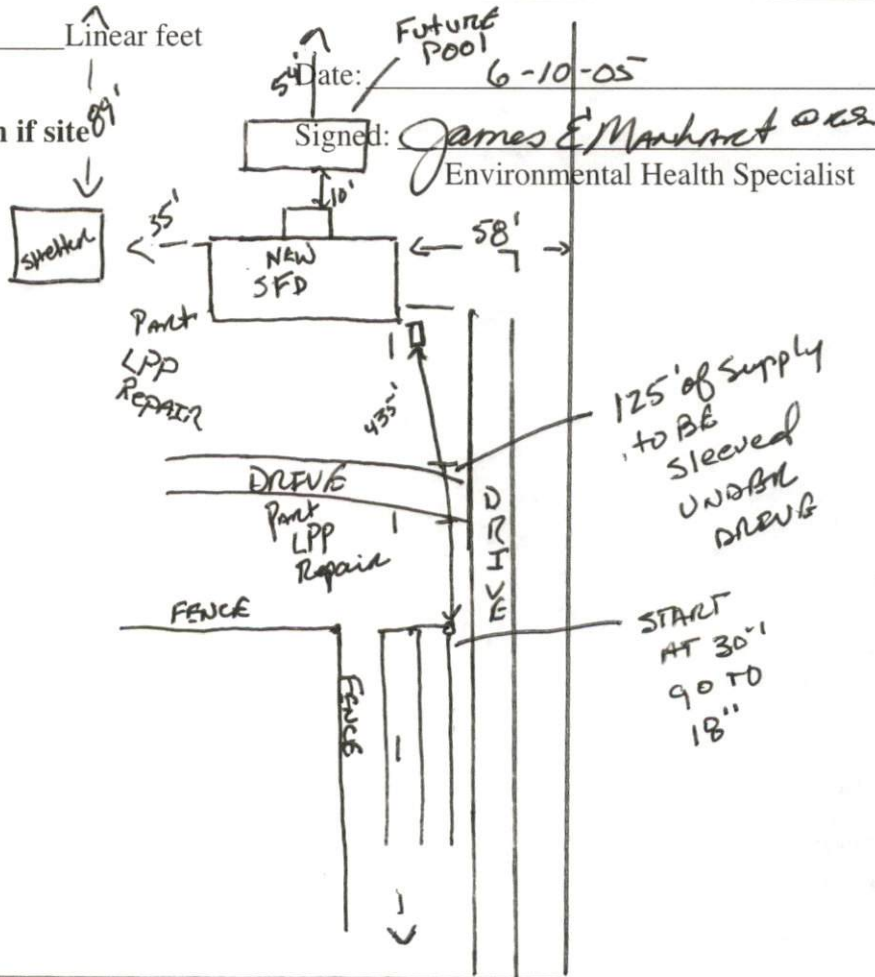 Linear feet
FUTURE
POOL
54'
Date: 6-10-05
n if site
89'
Signed: James E Manhart
Environmental Health Specialist
10'
SHELTER
35'
58'
NEW
SFD
PART
LPP
REPAIR
435'
125' of Supply
to BE
Sleeved
UNDER
DRIVE
DRIVE
Part
LPP
Repair
DRIVE
FENCE
START
AT 30"
go TO
18"
FENCE